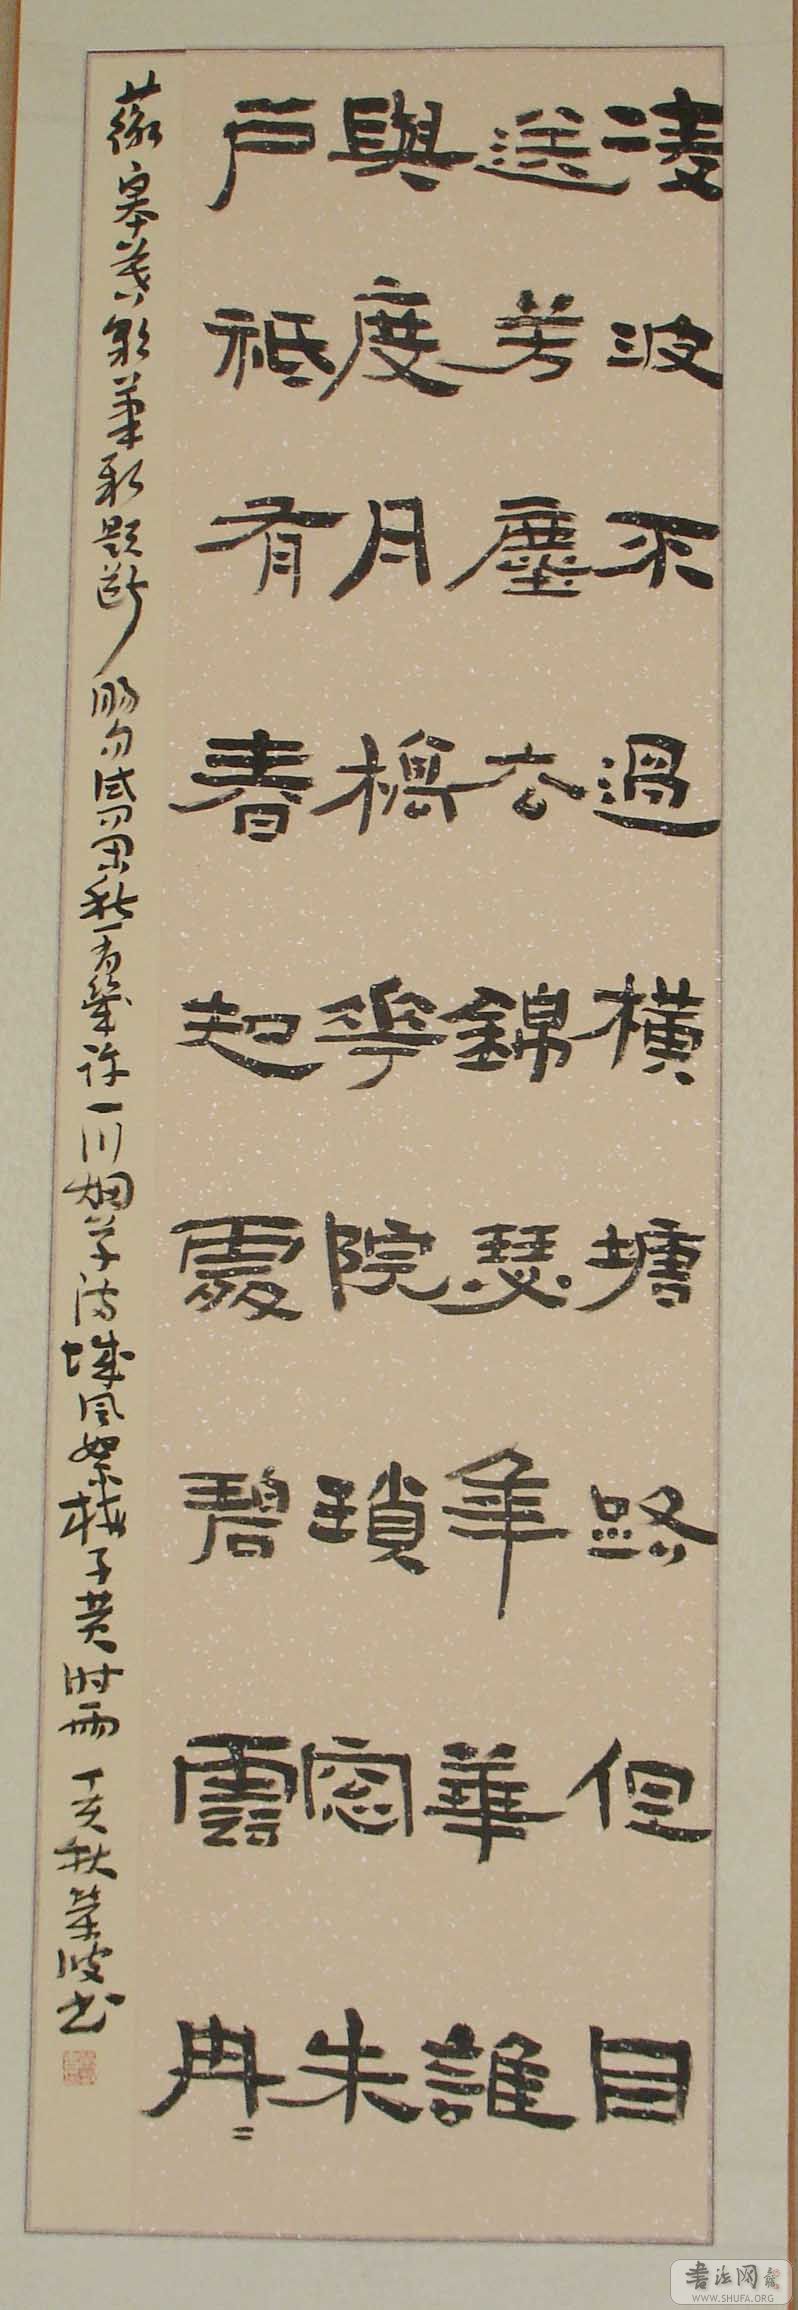 凌波不過橫塘路但目
送芳塵去錦瑟年華誰
與度月橋花院瑣窗朱
戶祗有春知處碧雲冉〻
蘅皋暮彩筆新題斷腸句試問閑愁都幾許一川烟草滿城風絮梅子黃时雨 丁亥秋榮波书
書法网
WWW.SHUFA.ORG